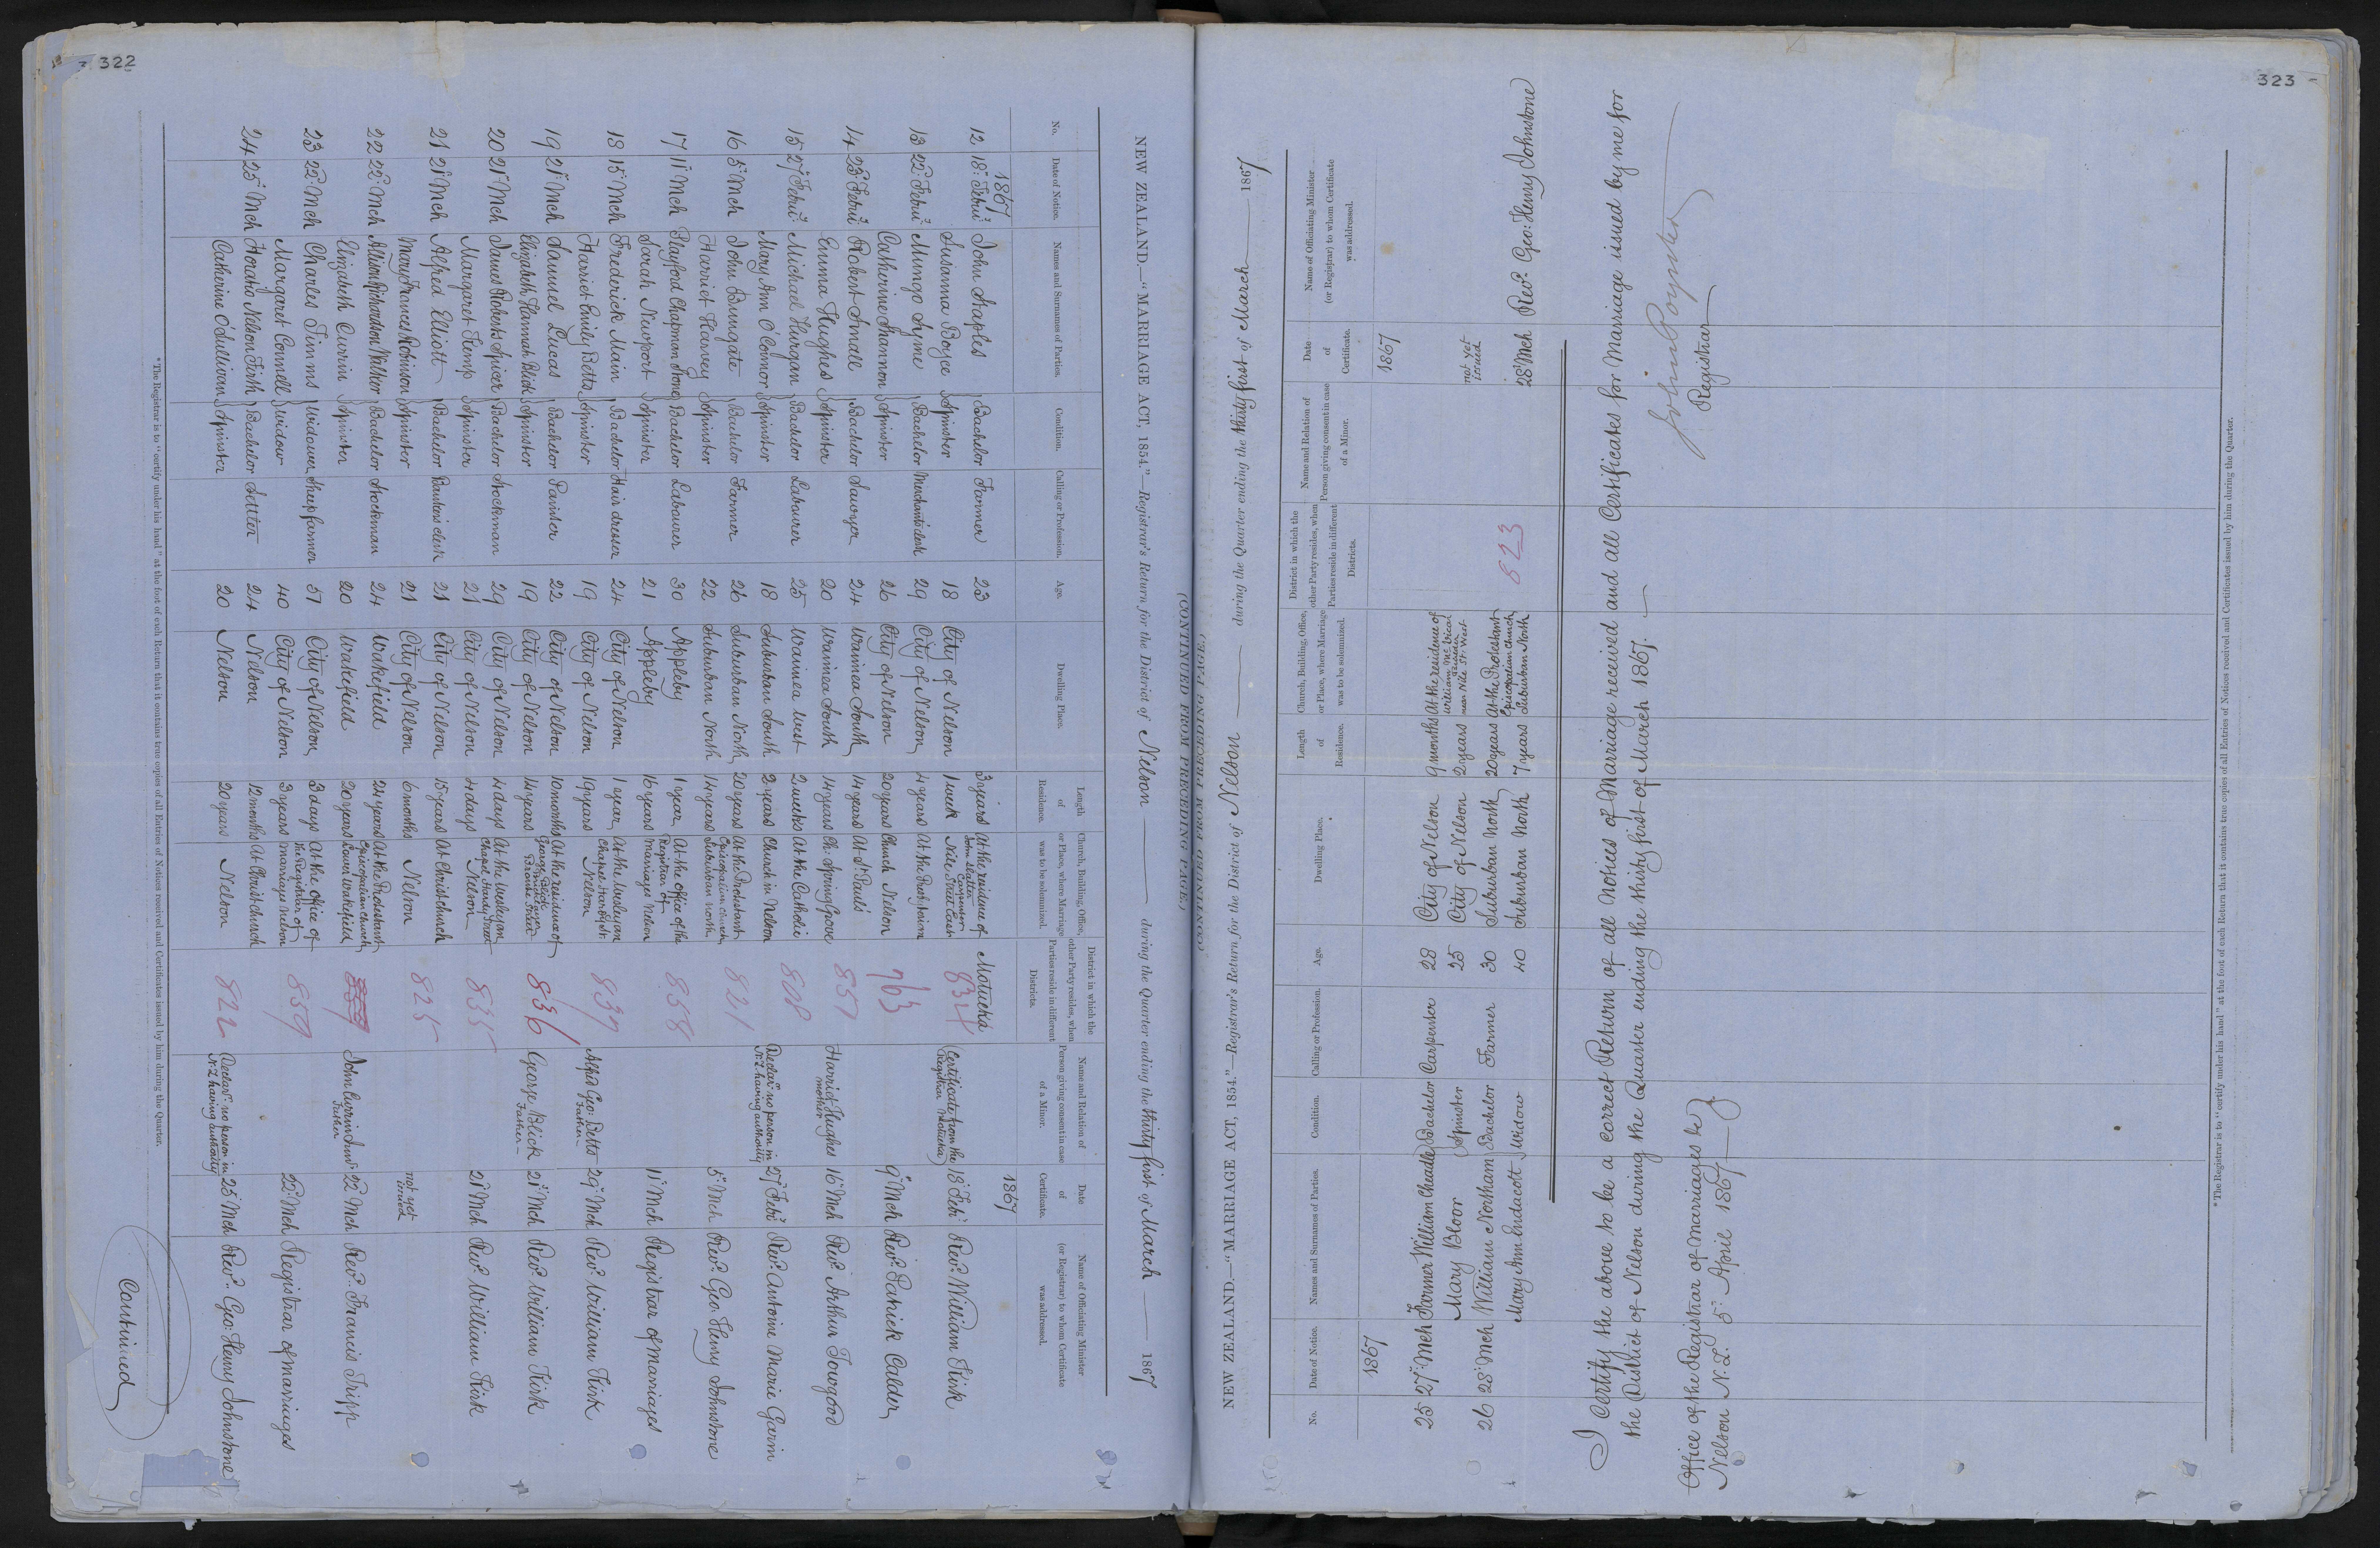 322
NEW ZEALAND.—"MARRIAGE ACT, 1854."—Registrar's Return for the District of Nelson during the Quarter ending the thirty first of March 1867
(CONTINUED FROM PRECEDING PAGE.)
No. Date of Notice. Names and Surnames of Parties. Condition. Calling or Profession. Age. Dwelling Place. Length of Residence. Church, Building, Office, or Place, where Marriage was to be solemnized. District in which the other Party resides, when Parties reside in different Districts. Name and Relation of Person giving consent in case of a Minor. Date of Certificate. Name of Officiating Minister (or Registrar) to whom Certificate was addressed.
1867 1867
12 18: Feby John Staples Bachelor Farmer 23 3 years At the residence of John Slatter Carpenter Nile Street East Motueka
Susanna Boyce Spinster 18 City of Nelson 1 week 834 (Certificate from the Registrar Motueka) 18: Feby Revd. William Kirk
13 22: Feby Mungo Syme Bachelor Merchant's clerk 29 City of Nelson 4 years At the Presbyterian Church Nelson
Catherine Shannon Spinster 26 City of Nelson 20 years 763 9 Mch Revd. Patrick Calder
14 23: Feby Robert Andle Bachelor Sawyer 24 Waimea South 14 years At St. Paul's Ch. Spring Grove
Emma Hughes Spinster 20 Waimea South 14 years 857 Harriet Hughes mother 16 Mch Revd. Arthur Towgood
15 27 Feby Michael Hurgan Bachelor Labourer 25 Waimea West 2 weeks At the Catholic Church in Nelson
Mary Ann O'Connor Spinster 18 Suburban South 2 years 808 Declarn. no person in N.Z. having authority 27 Feby Revd. Antoine Marie Garin
16 5 Mch John Bungate Bachelor Farmer 26 Suburban North 20 years At the Protestant Episcopalian church Suburban North
Harriet Harvey Spinster 22 Suburban North 14 years 821 5 Mch Revd. Geo. Henry Johnstone
17 11 Mch Playford Chapman Stone Bachelor Labourer 30 Appleby 1 year At the office of the Registrar of Marriages Nelson
Sarah Newport Spinster 21 Appleby 16 years 858 11 Mch Registrar of Marriages
18 15 Mch Frederick Main Bachelor Hair dresser 24 City of Nelson 1 year At the Wesleyan Chapel Hardy St. Nelson
Harriet Emily Betts Spinster 19 City of Nelson 19 years 837 Alfred Geo: Betts Father 29 Mch Revd. William Kirk
19 21 Mch Samuel Lucas Bachelor Painter 22 City of Nelson 10 months At the residence of George Blick Brook Street
Elizabeth Hannah Blick Spinster 19 City of Nelson 14 years 836 George Blick Father 21 Mch Revd. William Kirk
20 21 Mch James Roberts Spicer Bachelor Stockman 29 City of Nelson 4 days At the Wesleyan Chapel Hardy Street Nelson
Margaret Kemp Spinster 21 City of Nelson 4 days 835 21 Mch Revd. William Kirk
21 21 Mch Alfred Elliott Bachelor Bankers clerk 21 City of Nelson 15 years At Christ church Nelson
Mary Frances Robinson Spinster 21 City of Nelson 6 months 825 not yet issued
22 22 Mch Allison Richardson Walker Bachelor Stockman 24 Wakefield 24 years At the Protestant Episcopalian church Town Wakefield
Elizabeth Currin Spinster 20 Wakefield 20 years John Currin Senr. Father 22 Mch Revd. Francis Tripp
23 22 Mch Charles Timms Widower Sheepfarmer 57 City of Nelson 3 days At the office of the Registrar of Marriages Nelson
Margaret Connell Widow 40 City of Nelson 3 years 859 22 Mch Registrar of Marriages
24 25 Mch Horatio Nelson Firth Bachelor Settler 24 Nelson 12 months At Christ church Nelson
Catherine O'Sullivan Spinster 20 Nelson 20 years 822 Declarn. no person in N.Z. having authority 25 Mch Revd. Geo: Henry Johnstone
Continued
*The Registrar is to "certify under his hand" at the foot of each Return that it contains true copies of all Entries of Notices received and Certificates issued by him during the Quarter.
323
(CONTINUED FROM PRECEDING PAGE.)
NEW ZEALAND.—"MARRIAGE ACT, 1854."—Registrar's Return for the District of Nelson during the Quarter ending the thirty first of March 1867
No. Date of Notice. Names and Surnames of Parties. Condition. Calling or Profession. Age. Dwelling Place. Length of Residence. Church, Building, Office, or Place, where Marriage was to be solemnized. District in which the other Party resides, when Parties reside in different Districts. Name and Relation of Person giving consent in case of a Minor. Date of Certificate. Name of Officiating Minister (or Registrar) to whom Certificate was addressed.
1867 1867
25 27 Mch Farmer William Cheadle Bachelor Carpenter 28 City of Nelson 9 months At the residence of William near Nile St. West
Mary Bloor Spinster 25 City of Nelson 2 years not yet issued
26 28 Mch William Northam Bachelor Farmer 30 Suburban North 20 years At the Protestant Episcopalian Church Suburban North
Mary Ann Endacott Widow 40 Suburban North 7 years 823 28 Mch Revd. Geo: Henry Johnstone
I Certify the above to be a correct Return of all Notices of Marriage received and all Certificates for Marriage issued by me for
the District of Nelson during the Quarter ending the thirty first of March 1867.
Office of the Registrar of Marriages &c
Nelson N.Z. 5 April 1867
John Poynter
Registrar
*The Registrar is to "certify under his hand" at the foot of each Return that it contains true copies of all Entries of Notices received and Certificates issued by him during the Quarter.